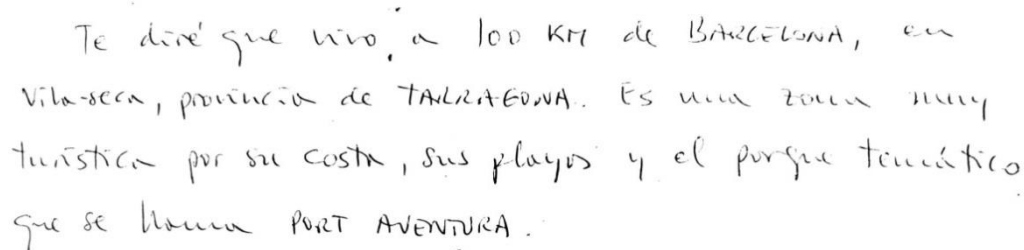 Te diré que vivo, a 100 KM de BARCELONA, en
Vila-seca, provincia de TARRAGONA. Es una zona muy
turística por su costa, sus playas y el parque temático
que se llama PORT AVENTURA.